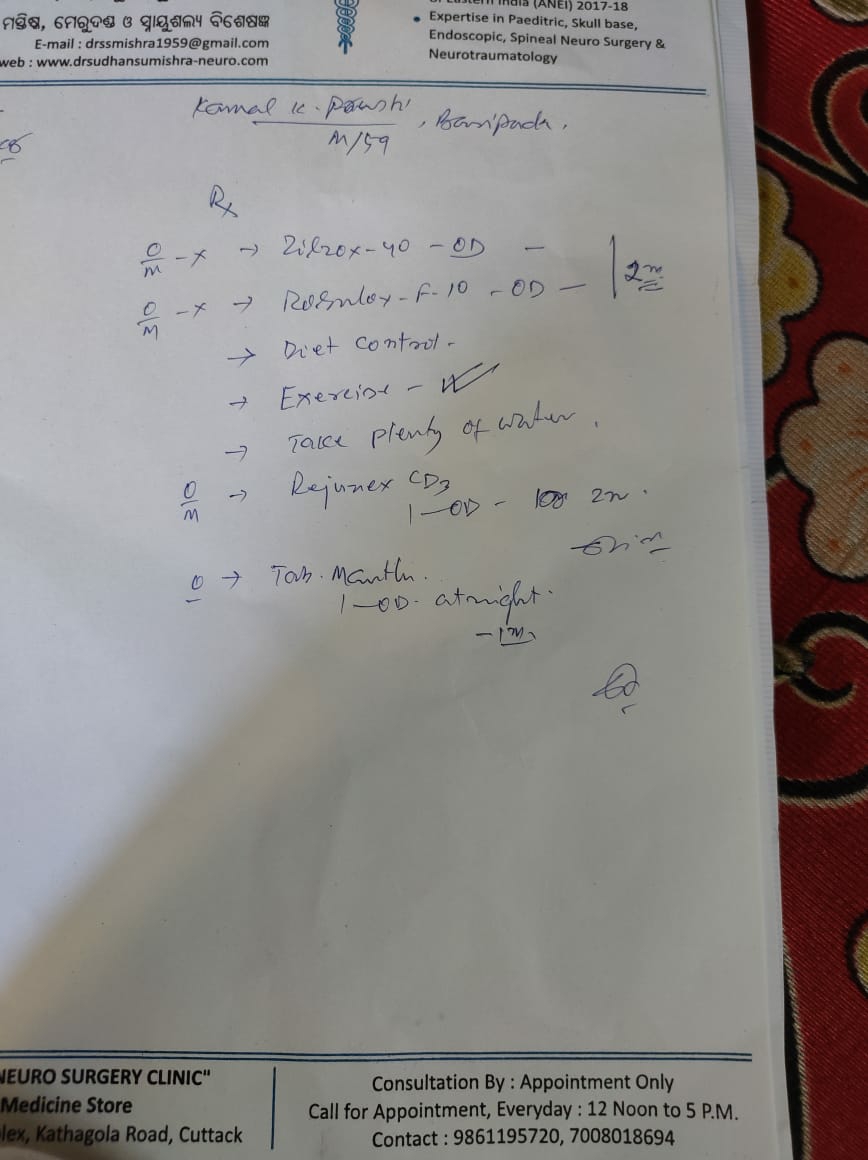 ମସ୍ତିଷ୍କ, ମେରୁଦଣ୍ଡ ଓ ସ୍ନାୟୁଶଲ୍ୟ ବିଶେଷଜ୍ଞ
E-mail : drssmishra1959@gmail.com
web : www.drsudhansumishra-neuro.com
(ANEI) 2017-18
• Expertise in Paeditric, Skull base,
Endoscopic, Spineal Neuro Surgery &
Neurotraumatology
Kamal K.
M/59
Rx
O/M - x → - 40 - OD -
O/M - x → - F - 10 - OD - 2m
→ Diet control -
→ Exercise -
→ Take plenty of water .
O/M → Rejunex CD3
1 - OD - 2m .
O → Tab.
1 - OD - at night .
- 1m
NEURO SURGERY CLINIC"
Medicine Store
Kathagola Road, Cuttack
Consultation By : Appointment Only
Call for Appointment, Everyday : 12 Noon to 5 P.M.
Contact : 9861195720, 7008018694